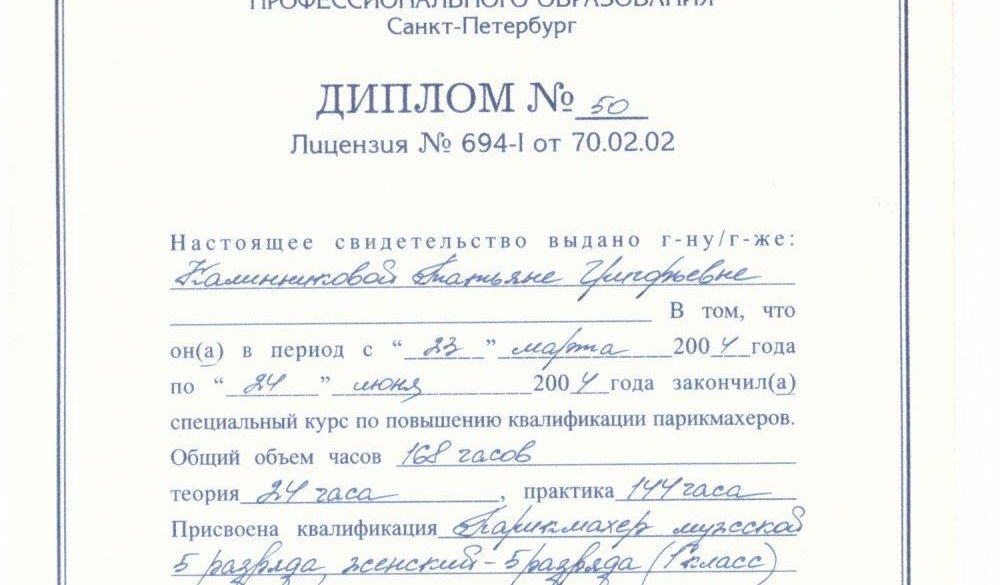 ПРОФЕССИОНАЛЬНОГО ОБРАЗОВАНИЯ
Санкт-Петербург
ДИПЛОМ № 50
Лицензия № 694-I от 70.02.02
Настоящее свидетельство выдано г-ну/г-же:
Калинниковой Татьяне Григорьевне
В том, что
он(а) в период с “ 23 ” марта 2004 года
по “ 24 ” июня 2004 года закончил(а)
специальный курс по повышению квалификации парикмахеров.
Общий объем часов 168 часов
теория 24 часа, практика 144 часа
Присвоена квалификация Парикмахер мужской
5 разряда, женский - 5 разряда (1 класс)